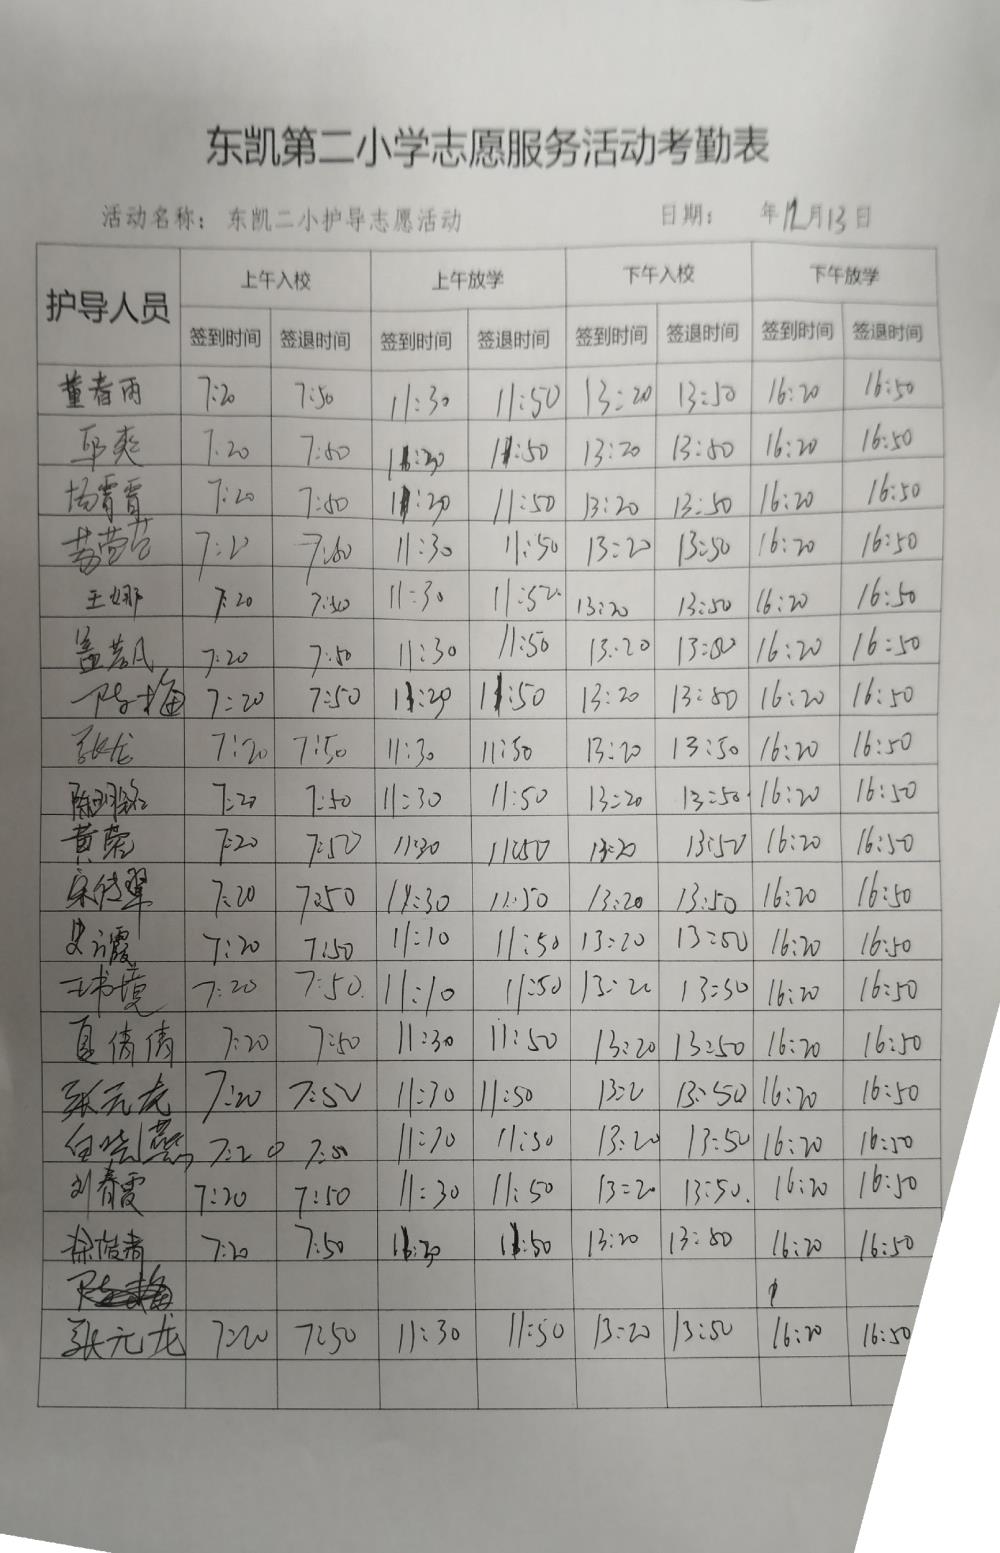 东凯第二小学志愿服务活动考勤表
活动名称：东凯二小护导志愿活动 日期： 年12月13日
护导人员 上午入校 上午放学 下午入校 下午放学
签到时间 签退时间 签到时间 签退时间 签到时间 签退时间 签到时间 签退时间
董春雨 7:20 7:50 11:30 11:50 13:20 13:50 16:20 16:50
邱爽 7:20 7:50 11:30 11:50 13:20 13:50 16:20 16:50
杨霄霄 7:20 7:50 11:30 11:50 13:20 13:50 16:20 16:50
7:20 7:50 11:30 11:50 13:20 13:50 16:20 16:50
王娜 7:20 7:50 11:30 11:50 13:20 13:50 16:20 16:50
7:20 7:50 11:30 11:50 13:20 13:50 16:20 16:50
陈梅 7:20 7:50 11:30 11:50 13:20 13:50 16:20 16:50
张龙 7:20 7:50 11:30 11:50 13:20 13:50 16:20 16:50
陈明 7:20 7:50 11:30 11:50 13:20 13:50 16:20 16:50
黄荣 7:20 7:50 11:30 11:50 13:20 13:50 16:20 16:50
宋传翠 7:20 7:50 11:30 11:50 13:20 13:50 16:20 16:50
霞 7:20 7:50 11:10 11:50 13:20 13:50 16:20 16:50
王书境 7:20 7:50 11:10 11:50 13:20 13:50 16:20 16:50
夏倩倩 7:20 7:50 11:30 11:50 13:20 13:50 16:20 16:50
张元虎 7:20 7:50 11:30 11:50 13:20 13:50 16:20 16:50
白晓燕 7:20 7:50 11:30 11:50 13:20 13:50 16:20 16:50
刘春霞 7:20 7:50 11:30 11:50 13:20 13:50 16:20 16:50
徐俊青 7:20 7:50 11:30 11:50 13:20 13:50 16:20 16:50
张元龙 7:20 7:50 11:30 11:50 13:20 13:50 16:20 16:50